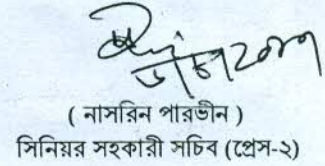 ( নাসরিন পারভীন )
সিনিয়র সহকারী সচিব (প্রেস-২)